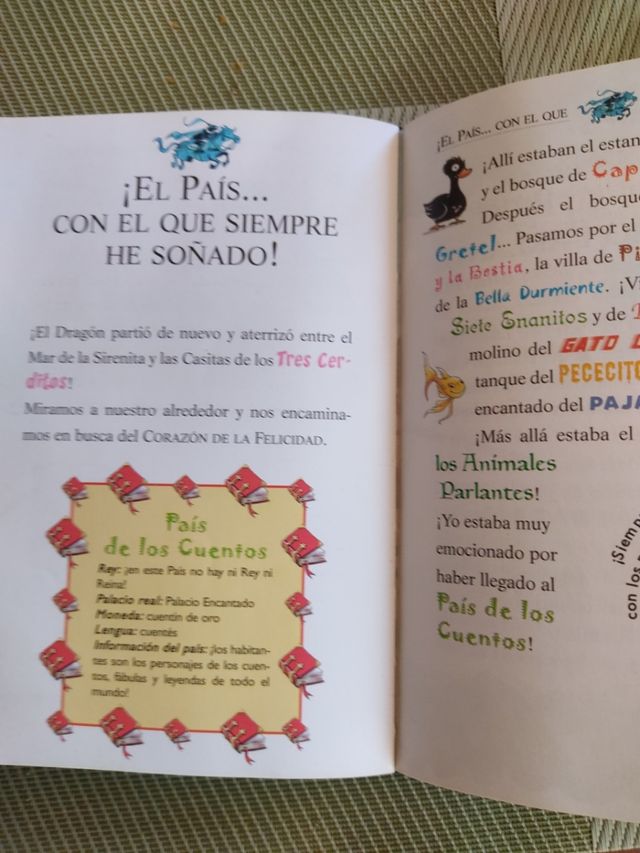 ¡EL PAÍS...
CON EL QUE SIEMPRE
HE SOÑADO!
¡El Dragón partió de nuevo y aterrizó entre el
Mar de la Sirenita y las Casitas de los Tres Cer-
ditos!
Miramos a nuestro alrededor y nos encamina-
mos en busca del CORAZÓN DE LA FELICIDAD.
País
de los Cuentos
Rey: ¡en este País no hay ni Rey ni
Reina!
Palacio real: Palacio Encantado
Moneda: cuentín de oro
Lengua: cuentés
Información del país: ¡los habitan-
tes son los personajes de los cuen-
tos, fábulas y leyendas de todo el
mundo!
¡EL PAÍS... CON EL QUE
¡Allí estaban el
y el bosque de
Después el
Gretel... Pasamos por el
y la Bestia, la villa de
de la Bella Durmiente.
Siete Enanitos y de
molino del GATO
tanque del
encantado del
¡Más allá estaba el
los Animales
Parlantes!
¡Yo estaba muy
emocionado por
haber llegado al
País de los
Cuentos!
con los